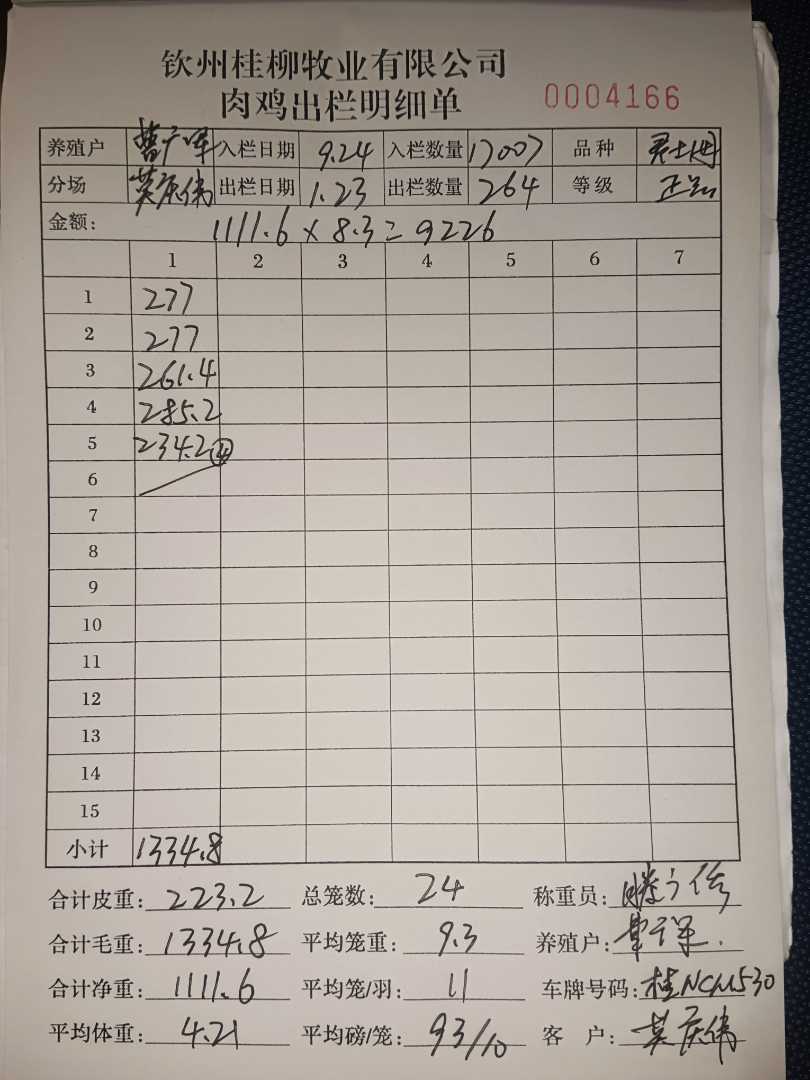 钦州桂柳牧业有限公司
肉鸡出栏明细单 0004166
养殖户 入栏日期 9.24 入栏数量 17007 品种
分场 莫庆伟 出栏日期 1.23 出栏数量 264 等级
金额: 1111.6 x 8.3 = 9226
1 2 3 4 5 6 7
1 277
2 277
3 261.4
4 285.2
5 234.2 ④
6
7
8
9
10
11
12
13
14
15
小计 1334.8
合计皮重: 223.2 总笼数: 24 称重员:
合计毛重: 1334.8 平均笼重: 9.3 养殖户:
合计净重: 1111.6 平均笼/羽: 11 车牌号码: 桂NCM530
平均体重: 4.21 平均磅/笼: 93/10 客 户: 莫庆伟